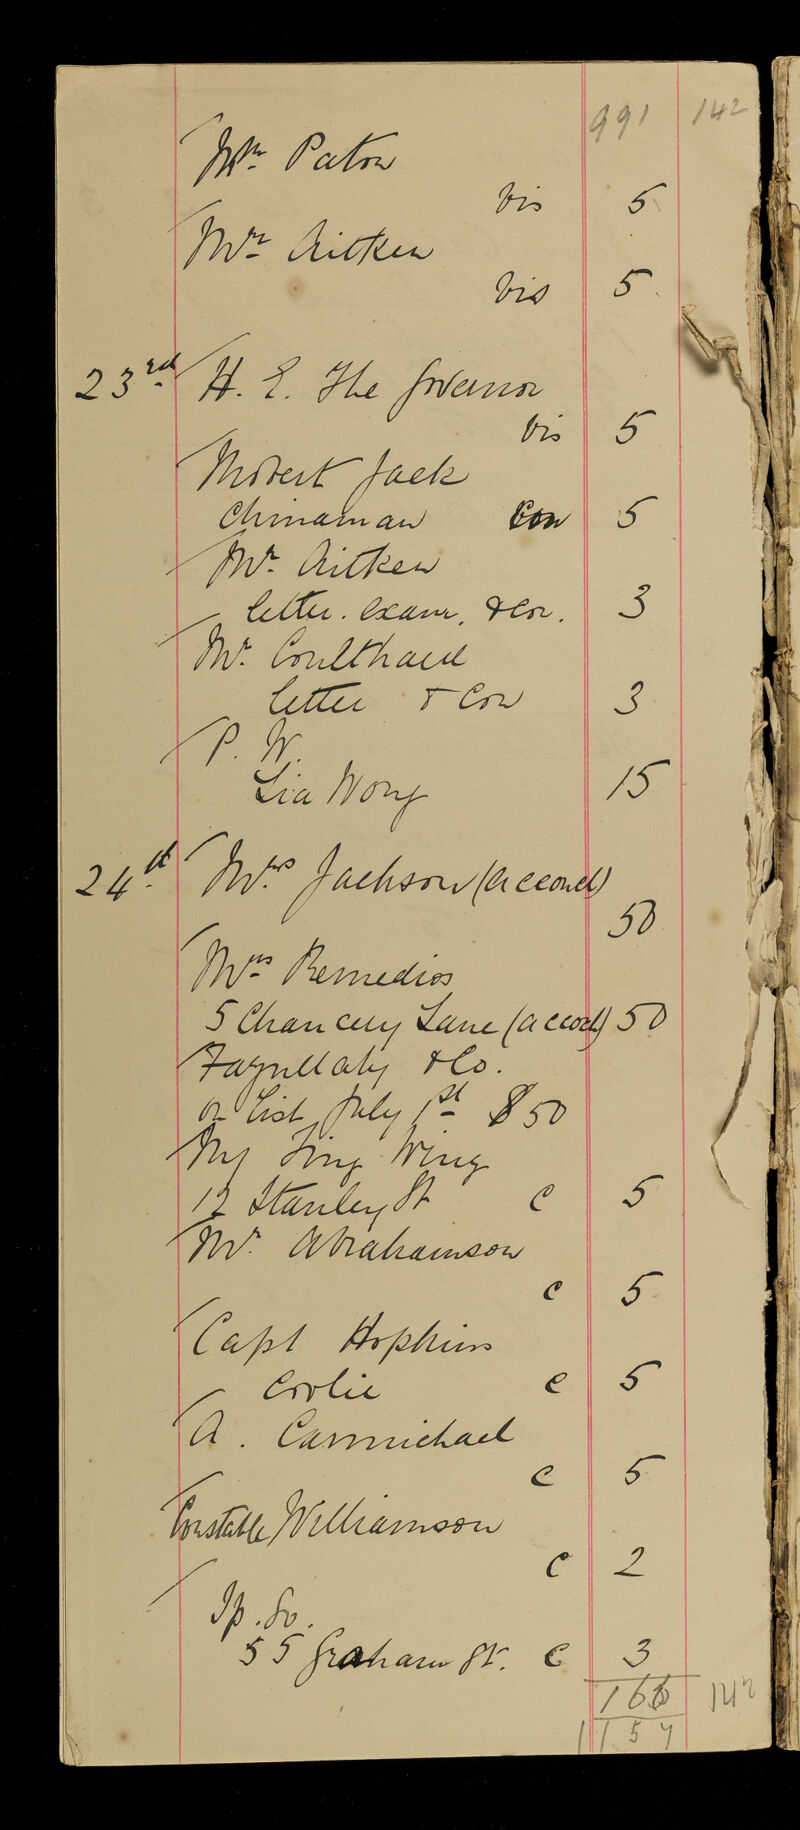 991 142
Mr. Paton
vis 5
Mr. Aitken
vis 5
23rd H. E. The Governor
vis 5
Robert Jack
Chinaman Con 5
Mr. Aitken
letter. Exam. & Con. 3
Mr. Coulthard
letter & Con 3
P. W.
Lia Wong 15
24th Mrs Jackson (accond)
50
Mrs Remedios
5 Chancery Lane (accod) 50
& Co.
on List July 1st $50
Ny Ting Wing
12 Stanley St c 5
Mr. Abrahamson
c 5
Capt Hopkins
Coolie c 5
A. Carmichael
c 5
Constable Williamson
c 2
Ip. So.
55 Graham St. c 3
166 142
1157